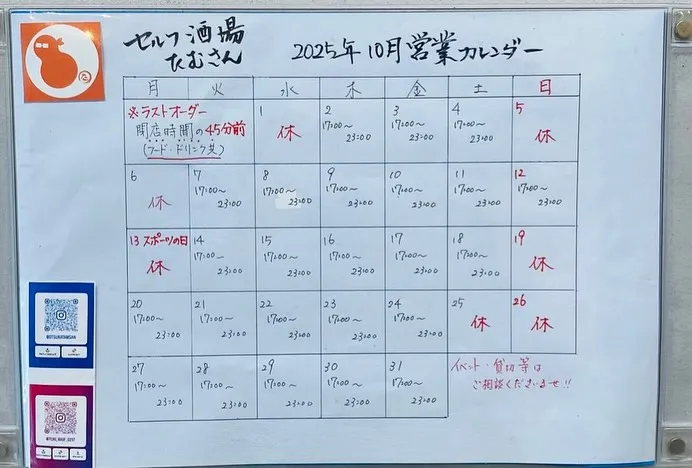 セルフ酒場
たむさん
2025年10月営業カレンダー
月 火 水 木 金 土 日
※ラストオーダー
閉店時間の45分前
(フード・ドリンク共)
1
休
2
17:00～
23:00
3
17:00～
23:00
4
17:00～
23:00
5
休
6
休
7
17:00～
23:00
8
17:00～
23:00
9
17:00～
23:00
10
17:00～
23:00
11
17:00～
23:00
12
17:00～
23:00
13 スポーツの日
休
14
17:00～
23:00
15
17:00～
23:00
16
17:00～
23:00
17
17:00～
23:00
18
17:00～
23:00
19
休
20
17:00～
23:00
21
17:00～
23:00
22
17:00～
23:00
23
17:00～
23:00
24
17:00～
23:00
25
休
26
休
27
17:00～
23:00
28
17:00～
23:00
29
17:00～
23:00
30
17:00～
23:00
31
17:00～
23:00
イベント・貸切等は
ご相談くださいませ!!